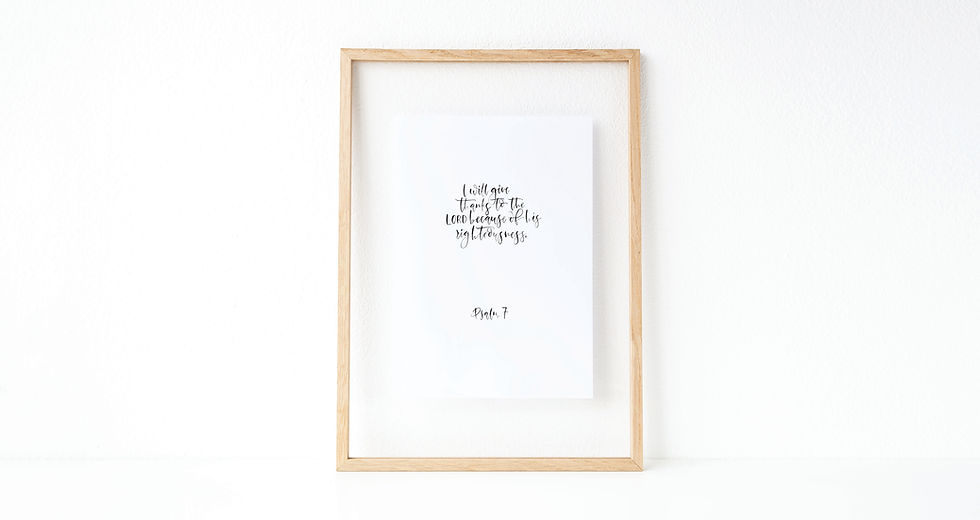 I will give
thanks to the
LORD because of his
righteousness.
Psalm 7